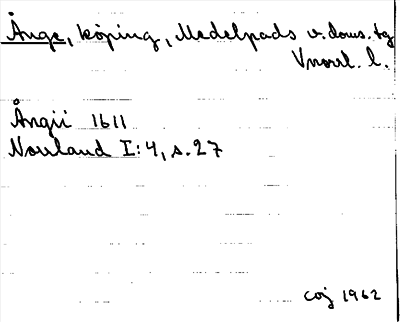 Ånge, köping, Medelpads v. doms. tg
Vnorrl. l.
Ångii 1611
Norrland I:4, s. 27
CoJ 1962